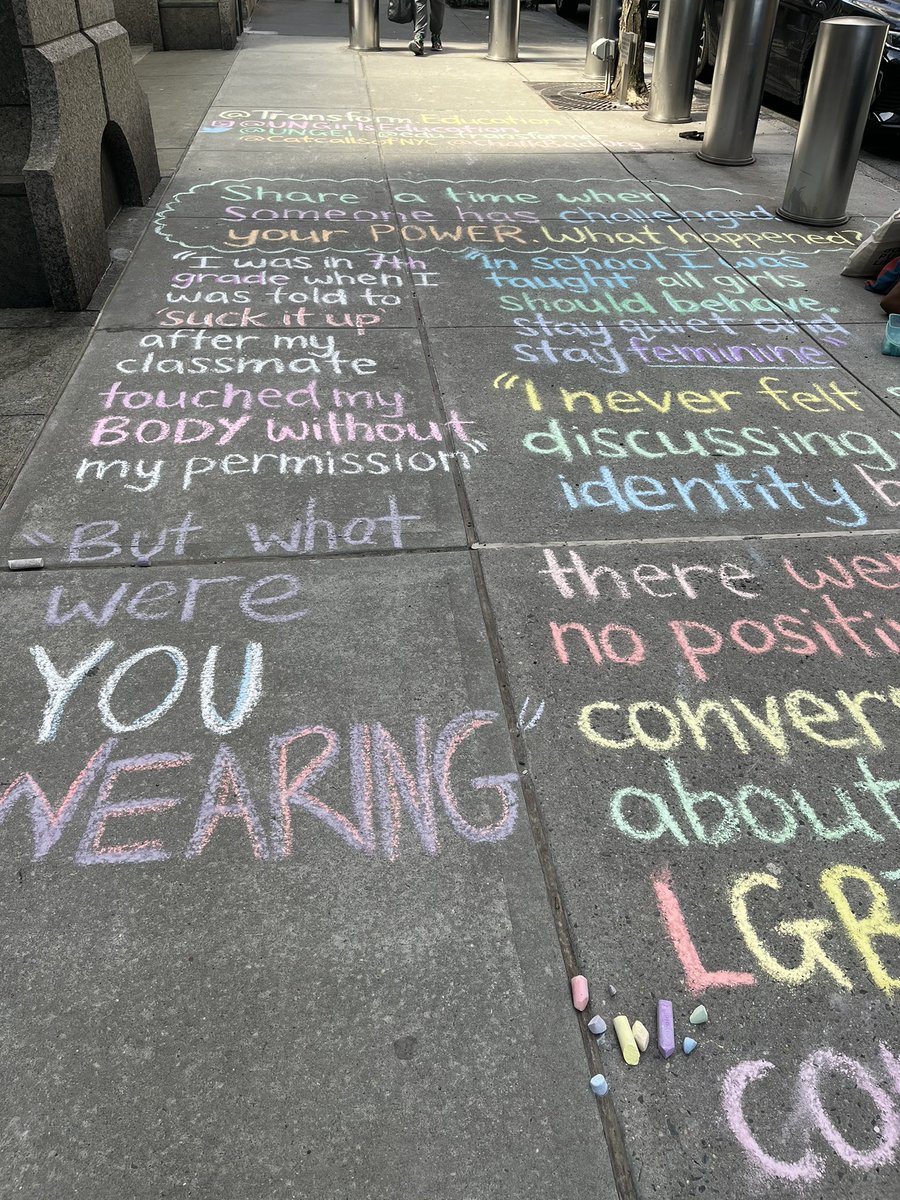 @Transform_Education
@UNGirlsEducation
@UNGEI
@CatcallsofNYC
Share a time when
someone has challenged
your POWER. What happened?
"I was in 7th
grade when I
was told to
'suck it up'
after my
classmate
touched my
BODY without
my permission"
"But what
were
YOU
WEARING"
"In school I was
taught all girls
should behave,
stay quiet and
stay feminine"
"I never felt
discussing
identity
there
no
conver
about
LGB